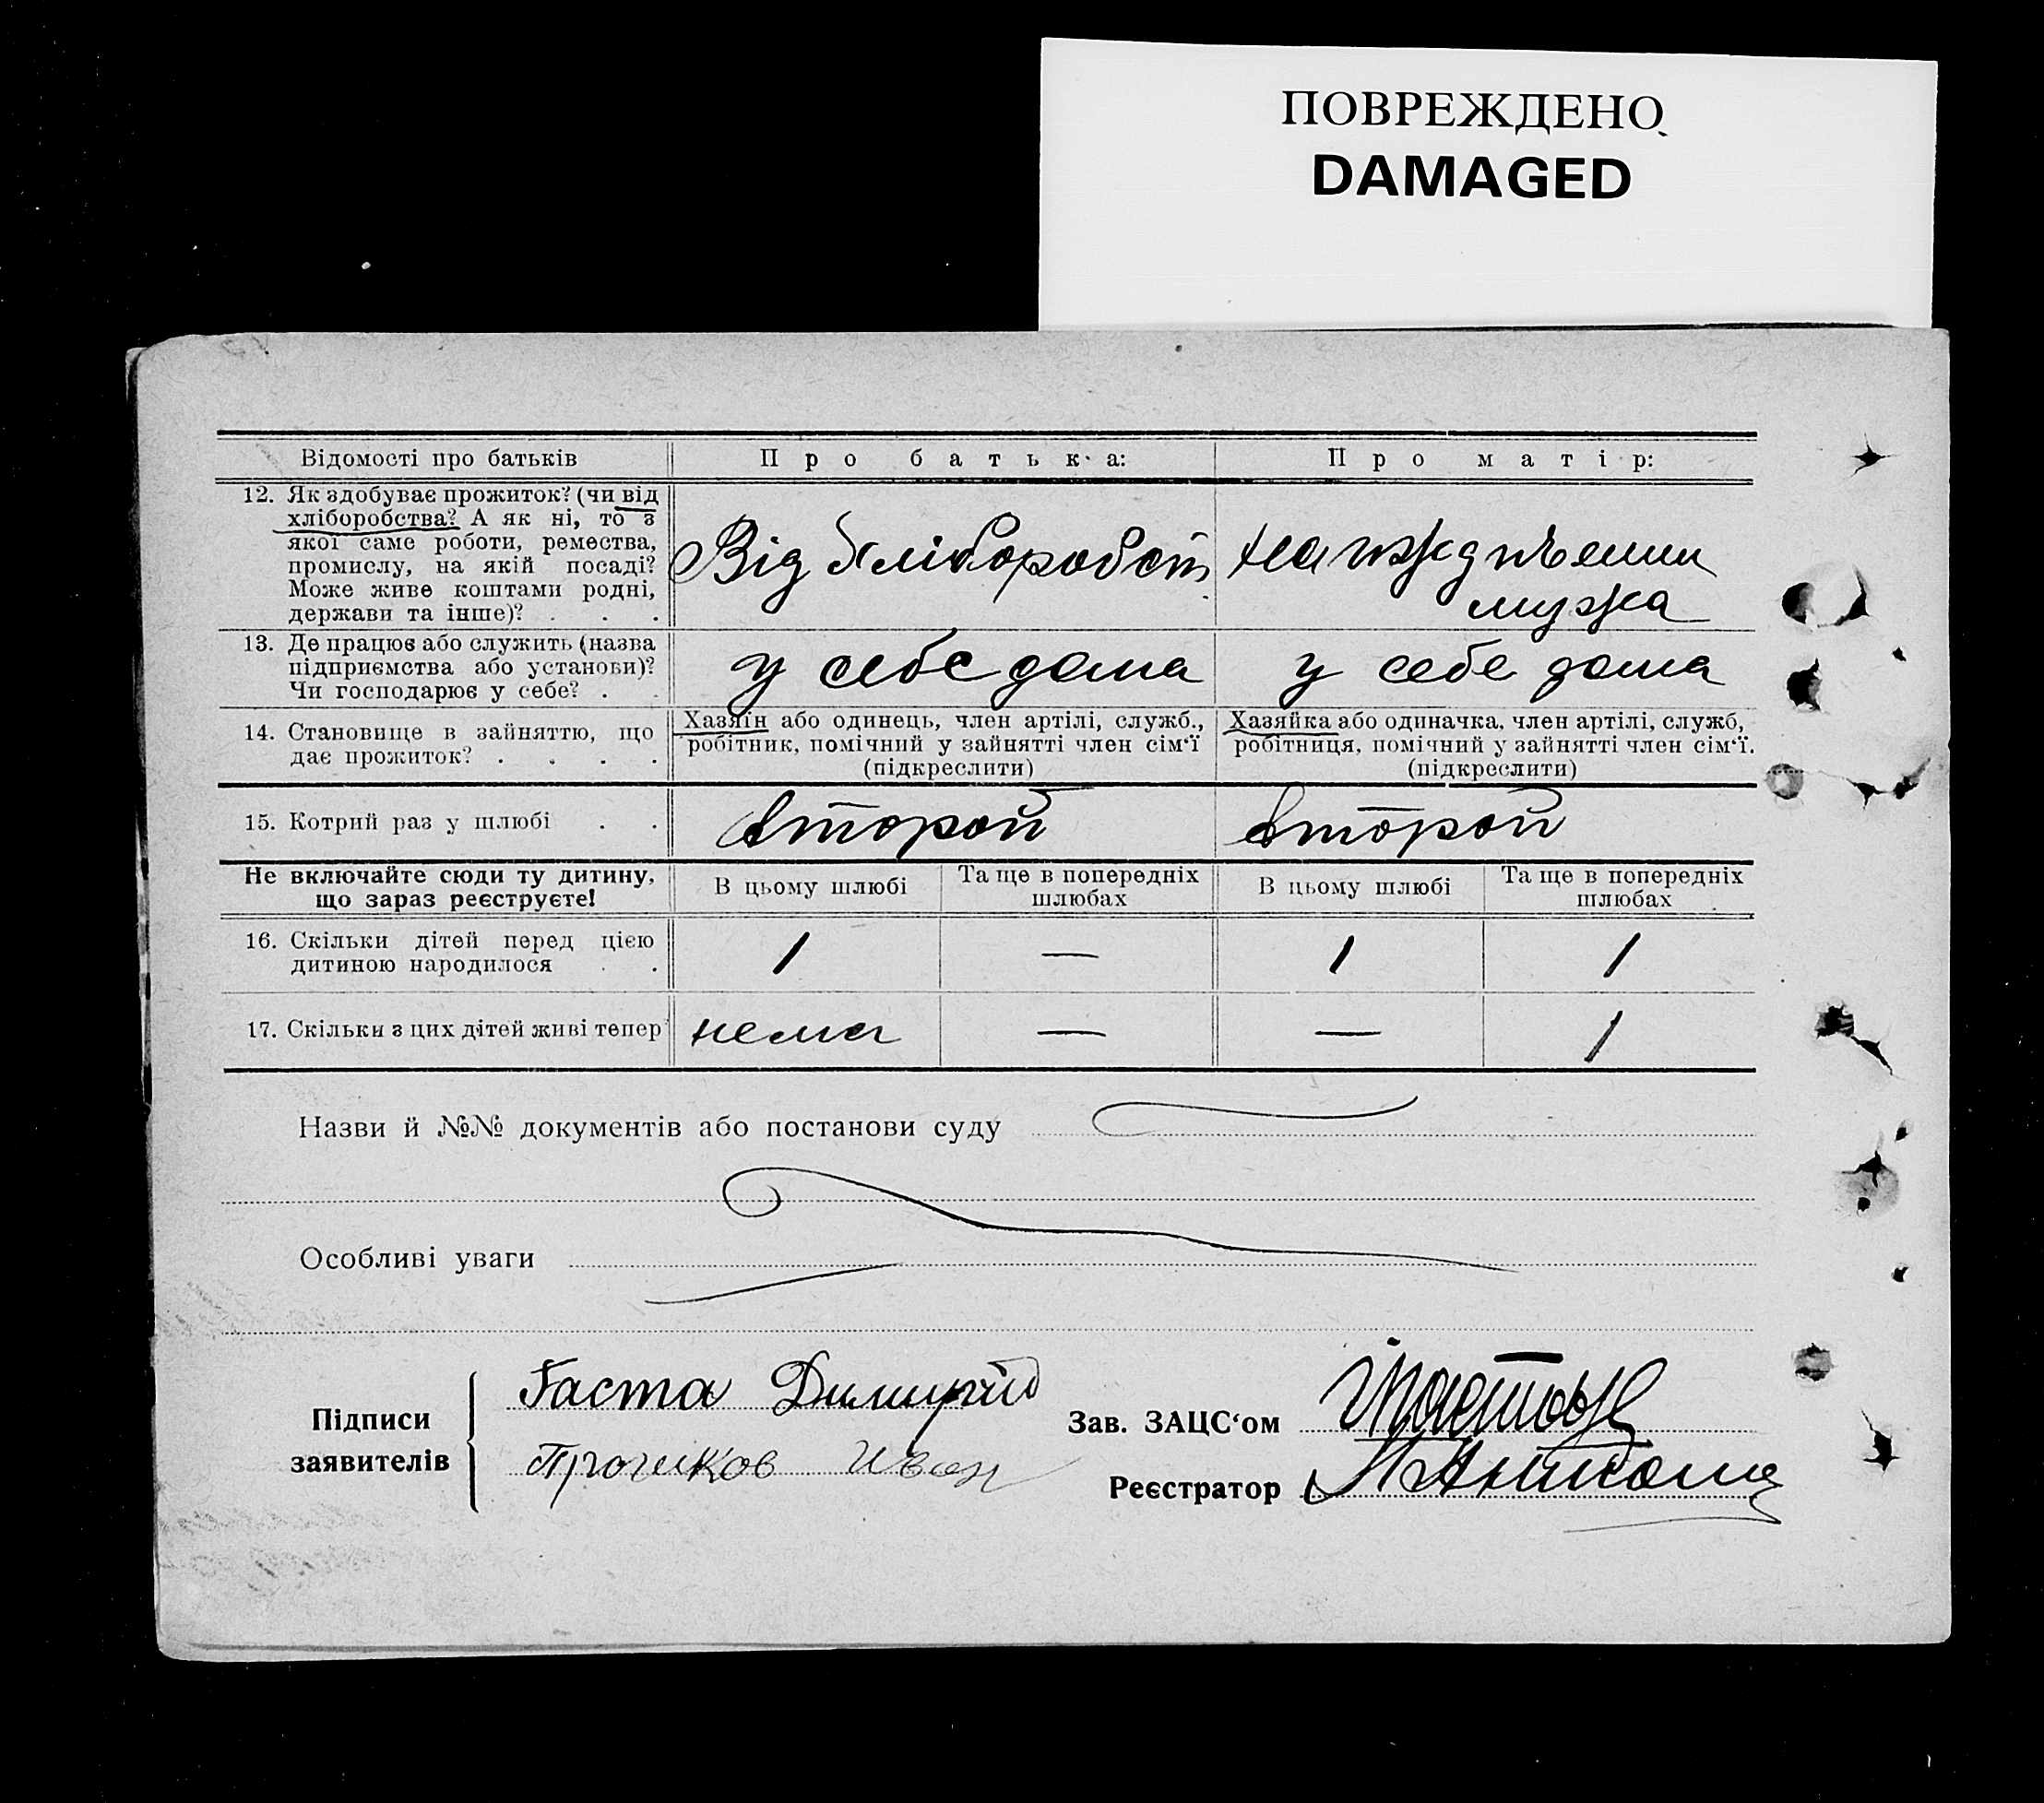 ПОВРЕЖДЕНО
DAMAGED
Відомості про батьків Про батька: Про матір:
12. Як здобуває прожиток? (чи від
хліборобства? А як ні, то з
якої саме роботи, ремества,
промислу, на якій посаді?
Може живе коштами родні,
держави та інше)? . . .
Від хліборобст
на
мужа
13. Де працює або служить (назва
підприємства або установи)?
Чи господарює у себе? . .
у себе дома у себе дома
14. Становище в зайняттю, що
дає прожиток? . . . .
Хазяїн або одинець, член артілі, служб.,
робітник, помічний у зайнятті член сім‘ї
(підкреслити)
Хазяйка або одиначка, член артілі, служб,
робітниця, помічний у зайнятті член сім‘ї.
(підкреслити)
15. Котрий раз у шлюбі . . второй второй
Не включайте сюди ту дитину,
що зараз реєструєте!
В цьому шлюбі
Та ще в попередніх
шлюбах
В цьому шлюбі
Та ще в попередніх
шлюбах
16. Скільки дітей перед цією
дитиною народилося . .
1 — 1 1
17. Скільки з цих дітей живі тепер нема — — 1
Назви й №№ документів або постанови суду
Особливі уваги
Підписи
заявителів
Гаста Димитрій
Иван
Зав. ЗАЦС‘ом
Реєстратор